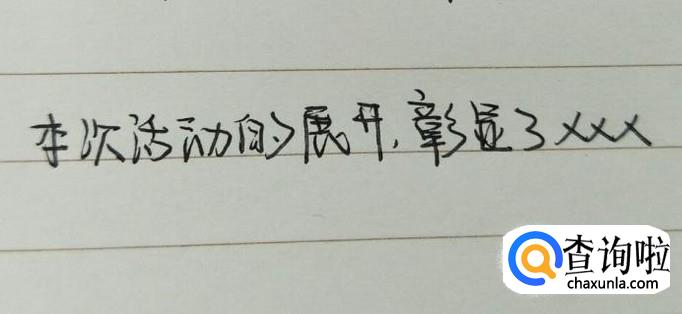 本次活动的展开,彰显了XXX
查询啦
chaxunla.com